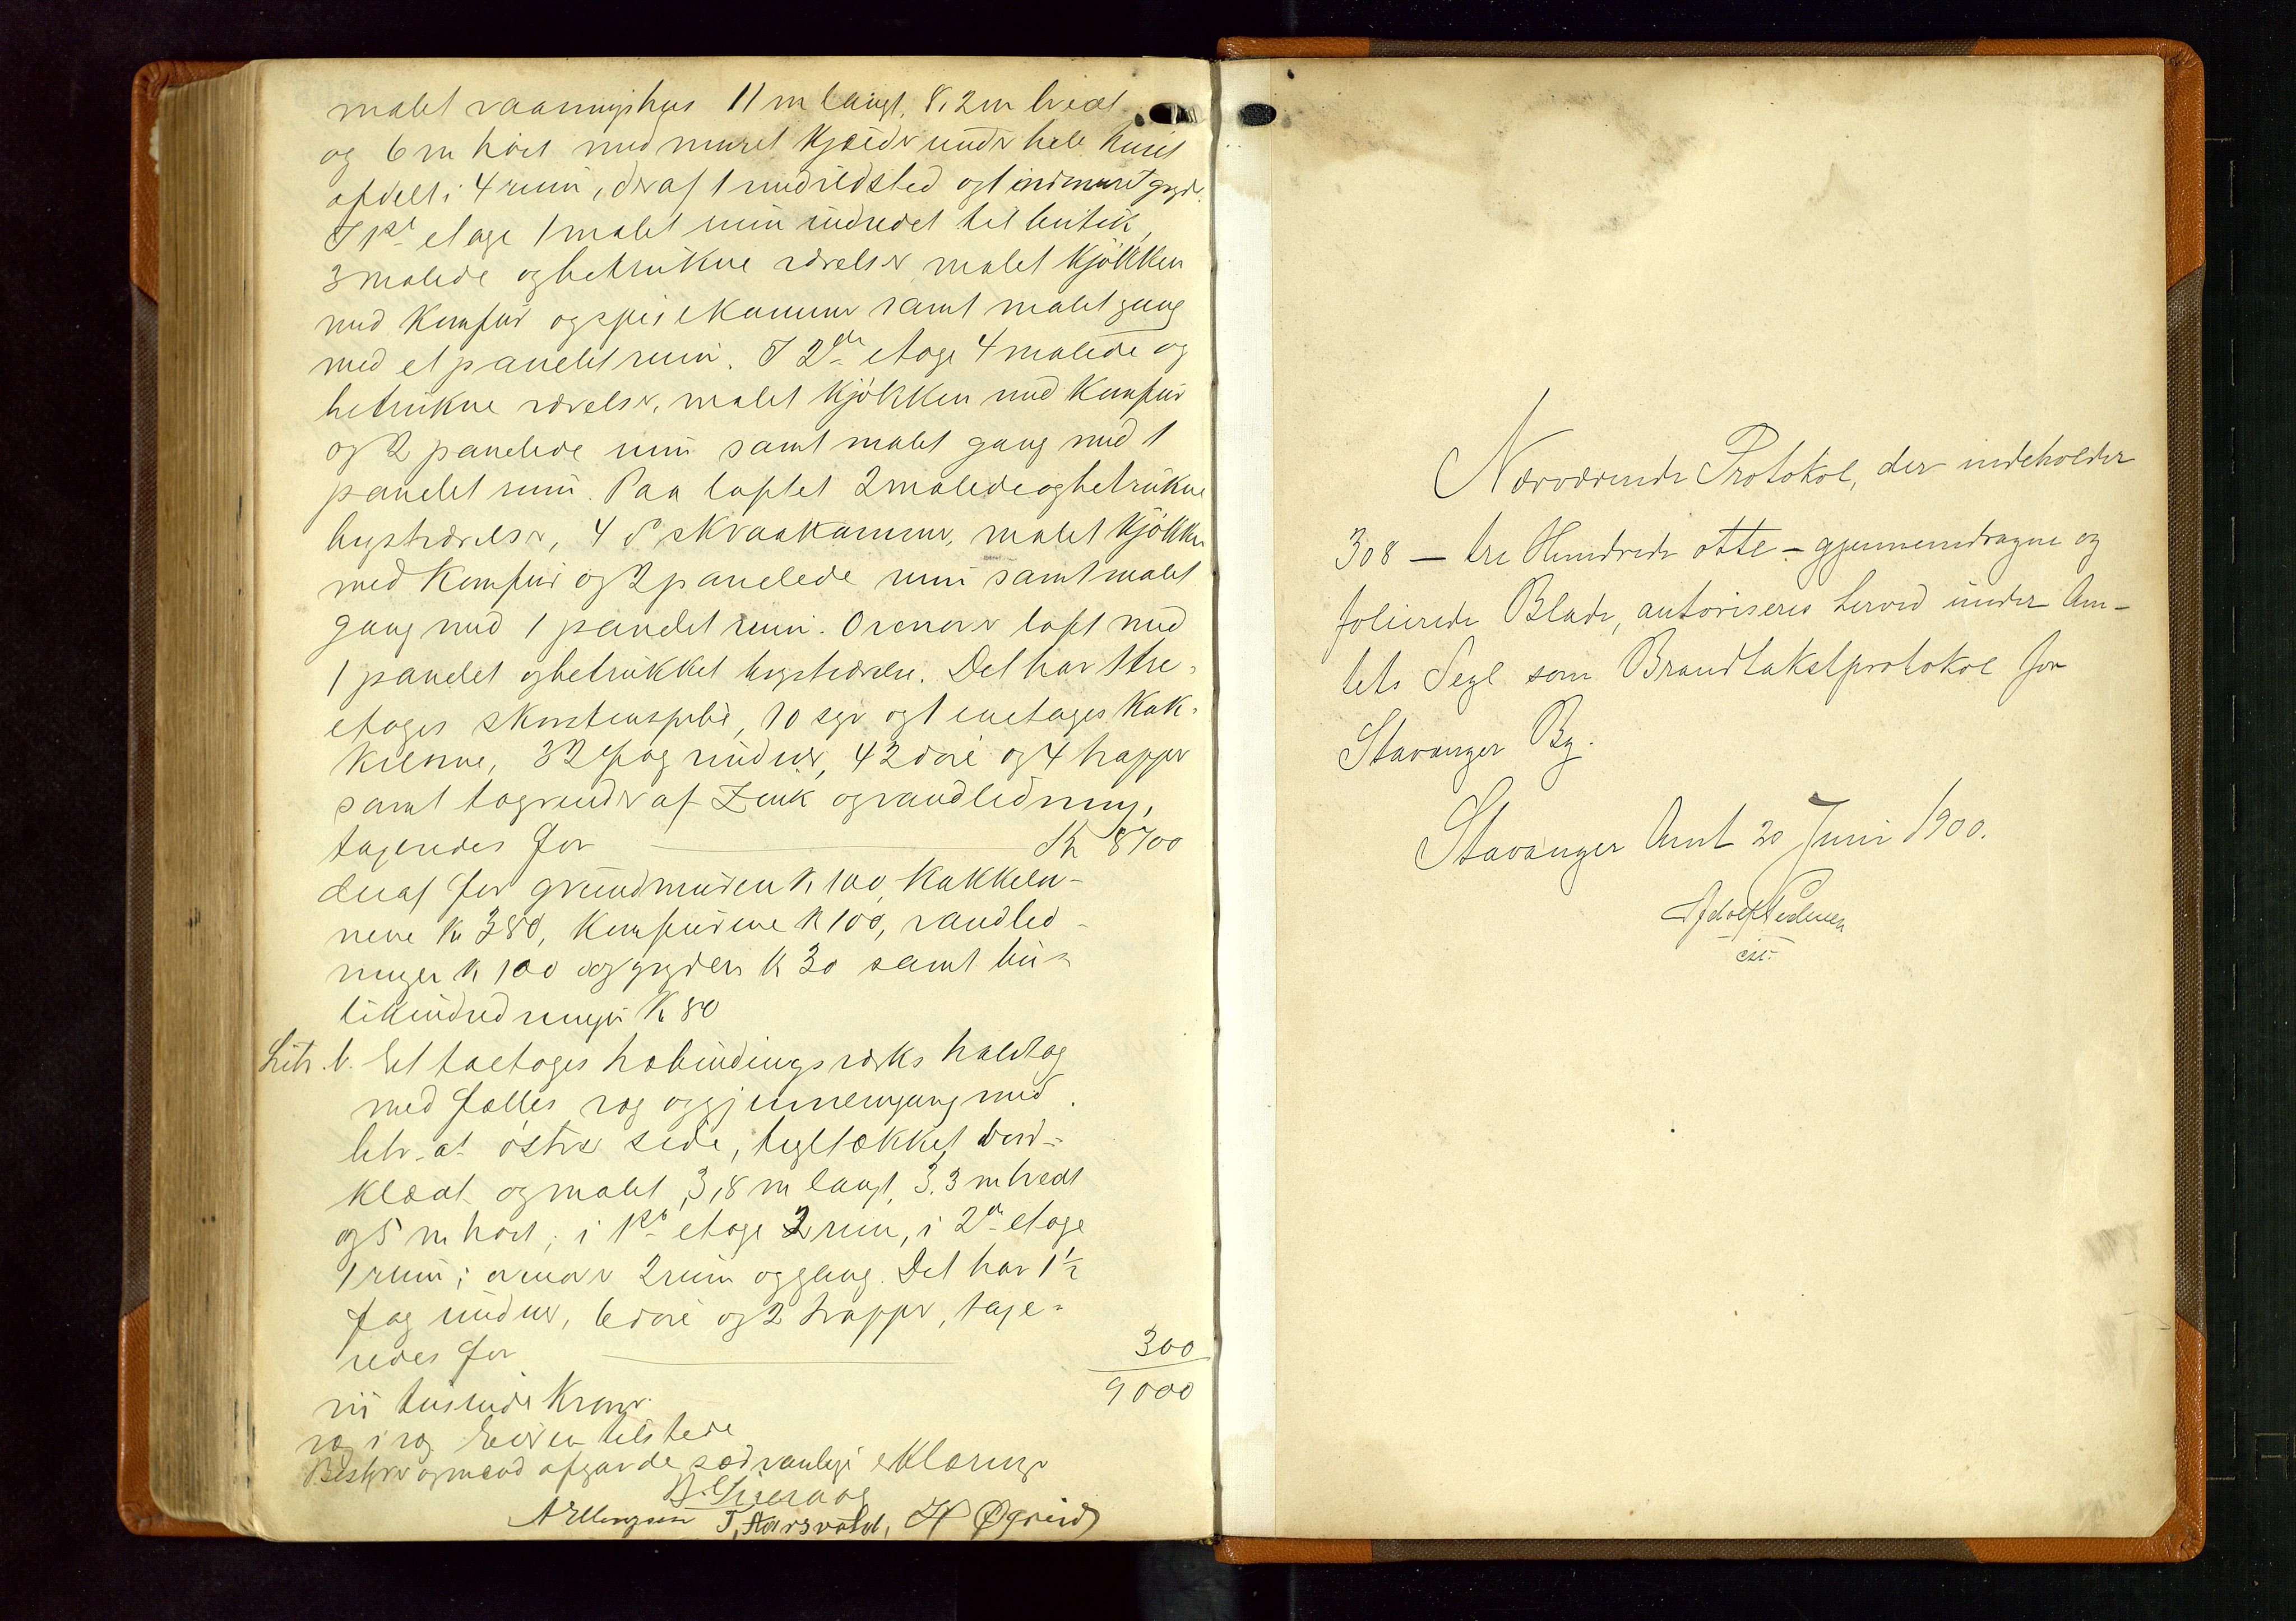 malet vaaningshus 11 m langt, 8,2 m bredt
og 6 m höit med muret kjelder under hele huset
afdelt i 4 rum, deraf 1 med ildsted og 1 indmuret gryde.
I 1ste etage 1 malet rum indredet til butik,
3 malede og betrukne værelser, malet kjökken
med komfur og spisekammer samt malet gang
med et panelet rum. I 2den etage 4 malede og
betrukne værelser, malet kjökken med komfur
og 2 panelede rum samt malet gang med 1
panelet rum. Paa loftet 2 malede og betrukne
kvistværelser, 4 do skraakammer, malet kjökken
med komfur og 2 panelede rum samt malet
gang med 1 panelet rum. Ovenover loft med
1 panelet og betrukket kvistværelse. Det har 1 tre-
etages skorstenspibe, 10 og 1 enetages kak-
kelovne, 32 fag vinduer, 42 döre og 4 trapper
samt tagrender af Zink og vandledning,
taxeredes for Kr 8700
deraf for grundmuren K 100, kakkelov-
nene Kr 380, komfurene K 100, vandled-
ningen K 100 og gryden K 30 samt bu-
tikindredningen K 80
Litr. b. Et toetages halvtag
med fælles væg og gjennemgang med
litr. a's östre side, tegltækket bord-
klædt og malet, 3,8 m langt, 3,3 m bredt
og 5 m höit; i 1ste etage 2 rum, i 2den etage
1 rum; ovenover 2 rum og gang. Det har 1½
fag vinduer, 6 döre og 2 trapper, taxe-
redes for 300
9000
ni tusinde Kroner.
Eieren tilstede
Bestyrer og mænd afgav de sædvanlige erklæringer
A Ellingsen T. Aarsvold, H Øgreid
Nærværende Protokol, der indeholder
308 – tre Hundrede otte – gjennemdragne og
folierede Blade, autoriseres herved under Am-
tets Segl som Brandtakstprotokol for
Stavanger By.
Stavanger Amt 20 Juni 1900.
Adolf Pedersen
cst.